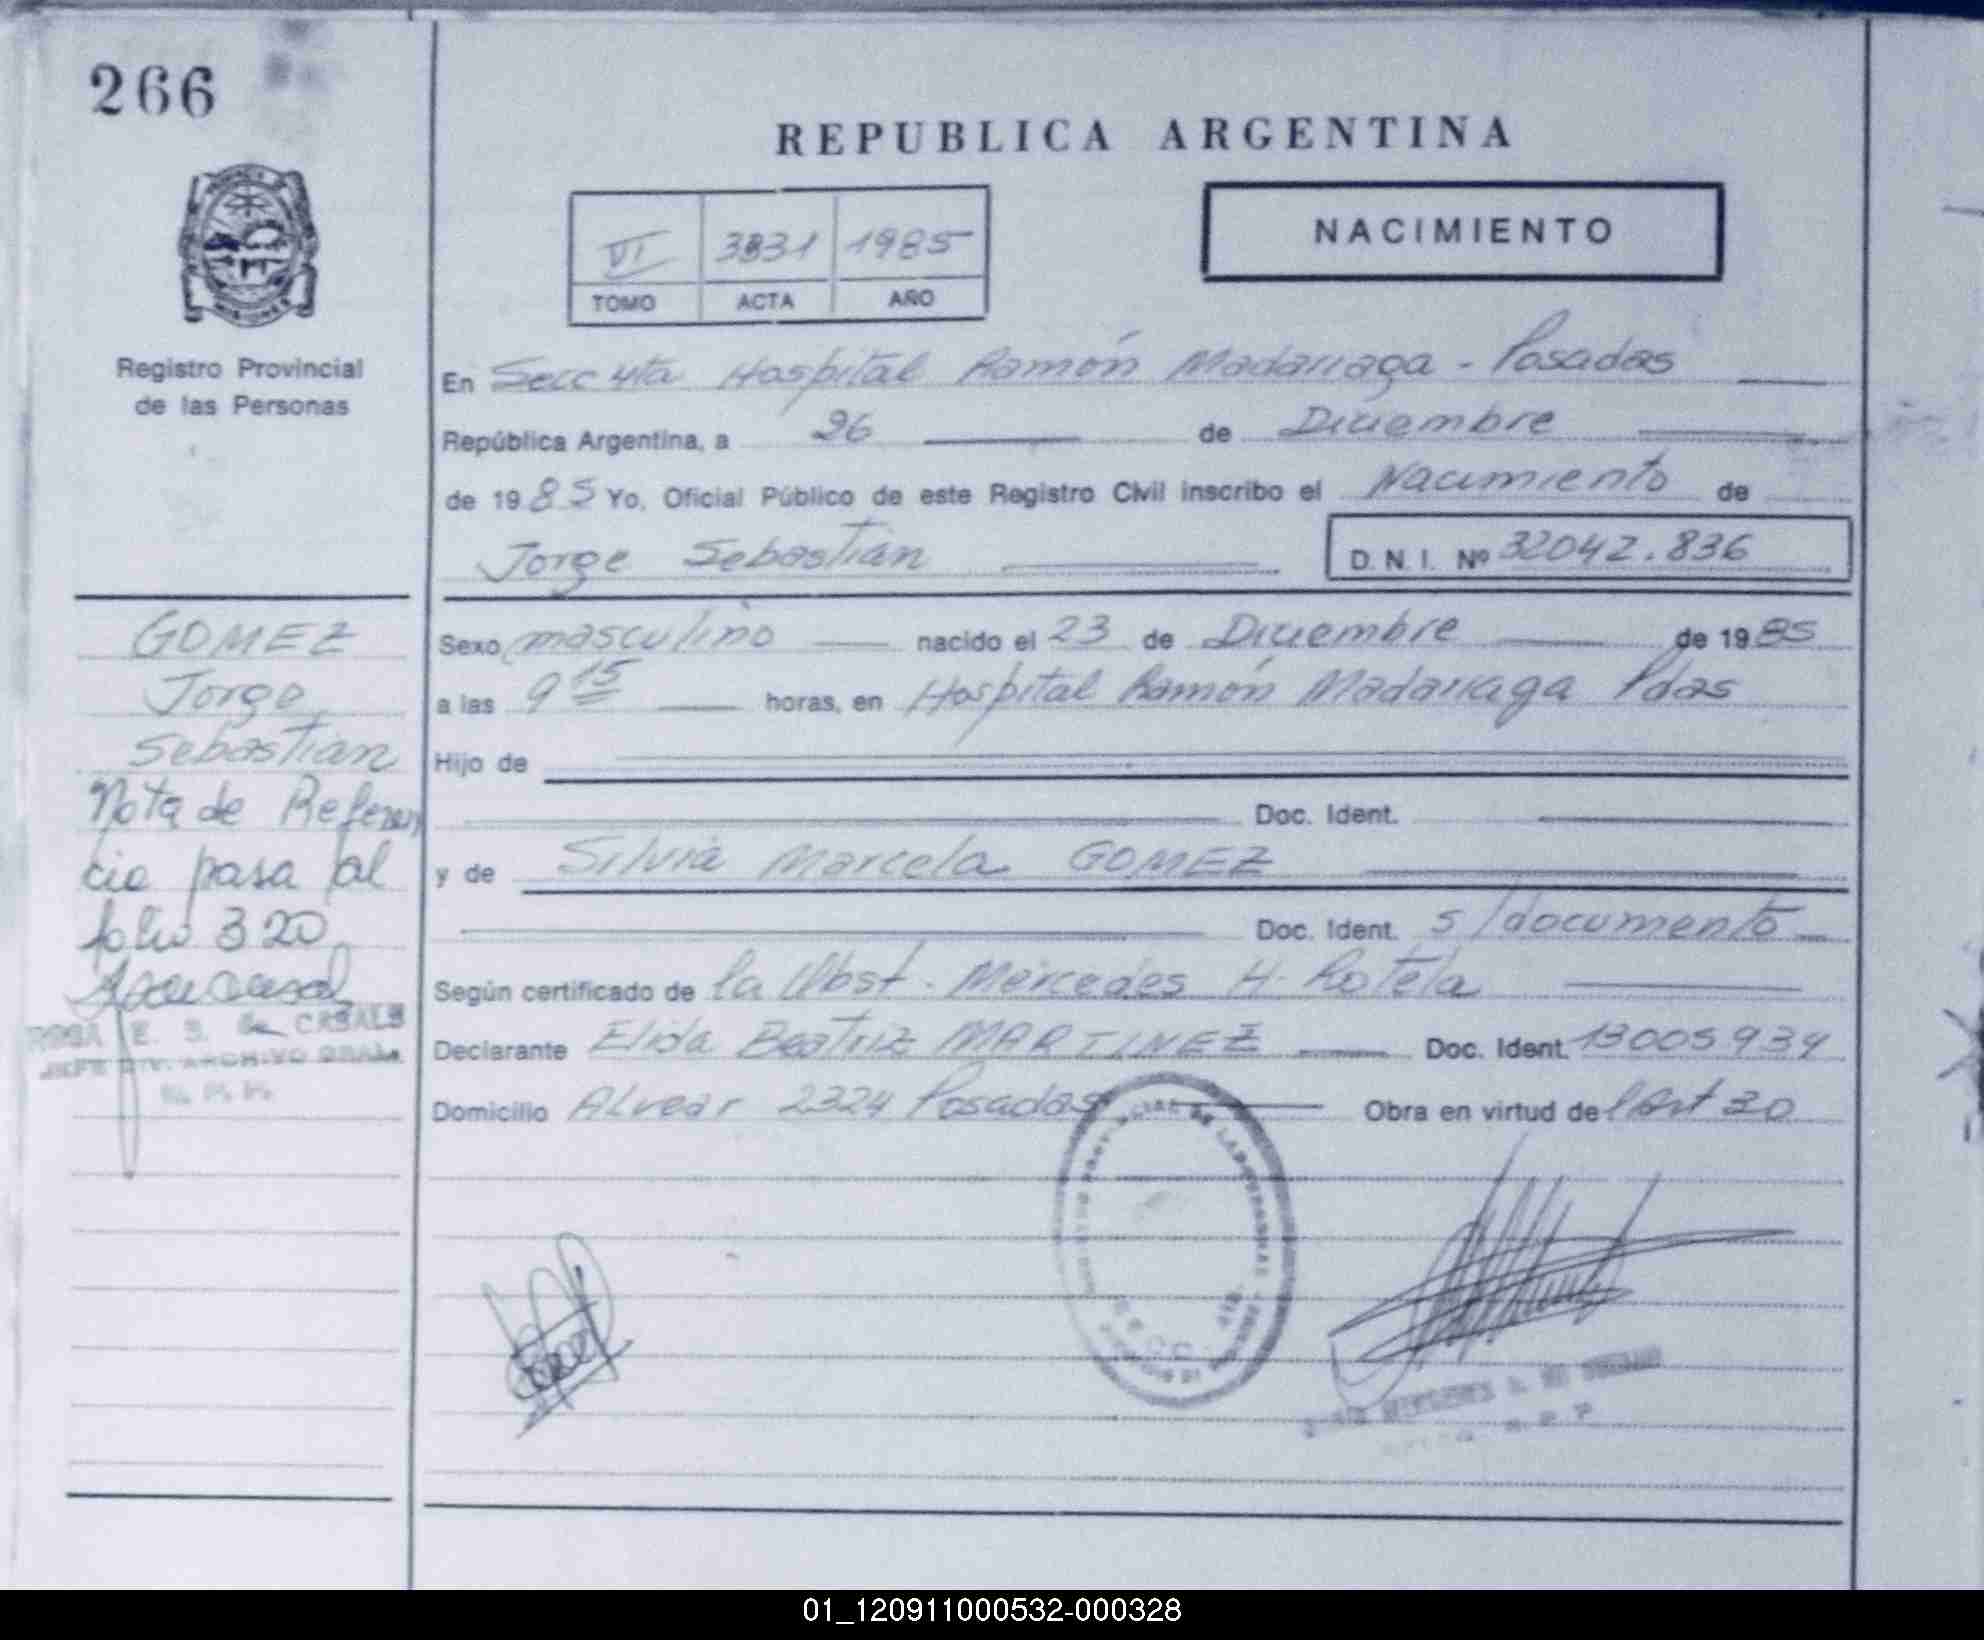 266
REPUBLICA ARGENTINA
NACIMIENTO
VI 3831 1985
TOMO ACTA AÑO
Registro Provincial
de las Personas
En Secc 4ta Hospital Ramón Madariaga - Posadas
República Argentina, a 26 de Diciembre
de 1985 Yo, Oficial Público de este Registro Civil inscribo el Nacimiento de
Jorge Sebastian
D. N. I. Nº 32042.836
GOMEZ
Jorge
Sebastian
Nota de Referen
cia pasa al
folio 320
ROSA E. S. de CASALS
JEFE DIV. ARCHIVO GRAL.
Sexo masculino nacido el 23 de Diciembre de 1985
a las 9 15 horas, en Hospital Ramón Madariaga Pdas
Hijo de
Doc. Ident.
y de Silvia Marcela GOMEZ
Doc. Ident. s/documento
Según certificado de la Obst. Mercedes H. Rotela
Declarante Elida Beatriz MARTINEZ Doc. Ident. 13005934
Domicilio Alvear 2324 Posadas Obra en virtud del Art 30
01_120911000532-000328